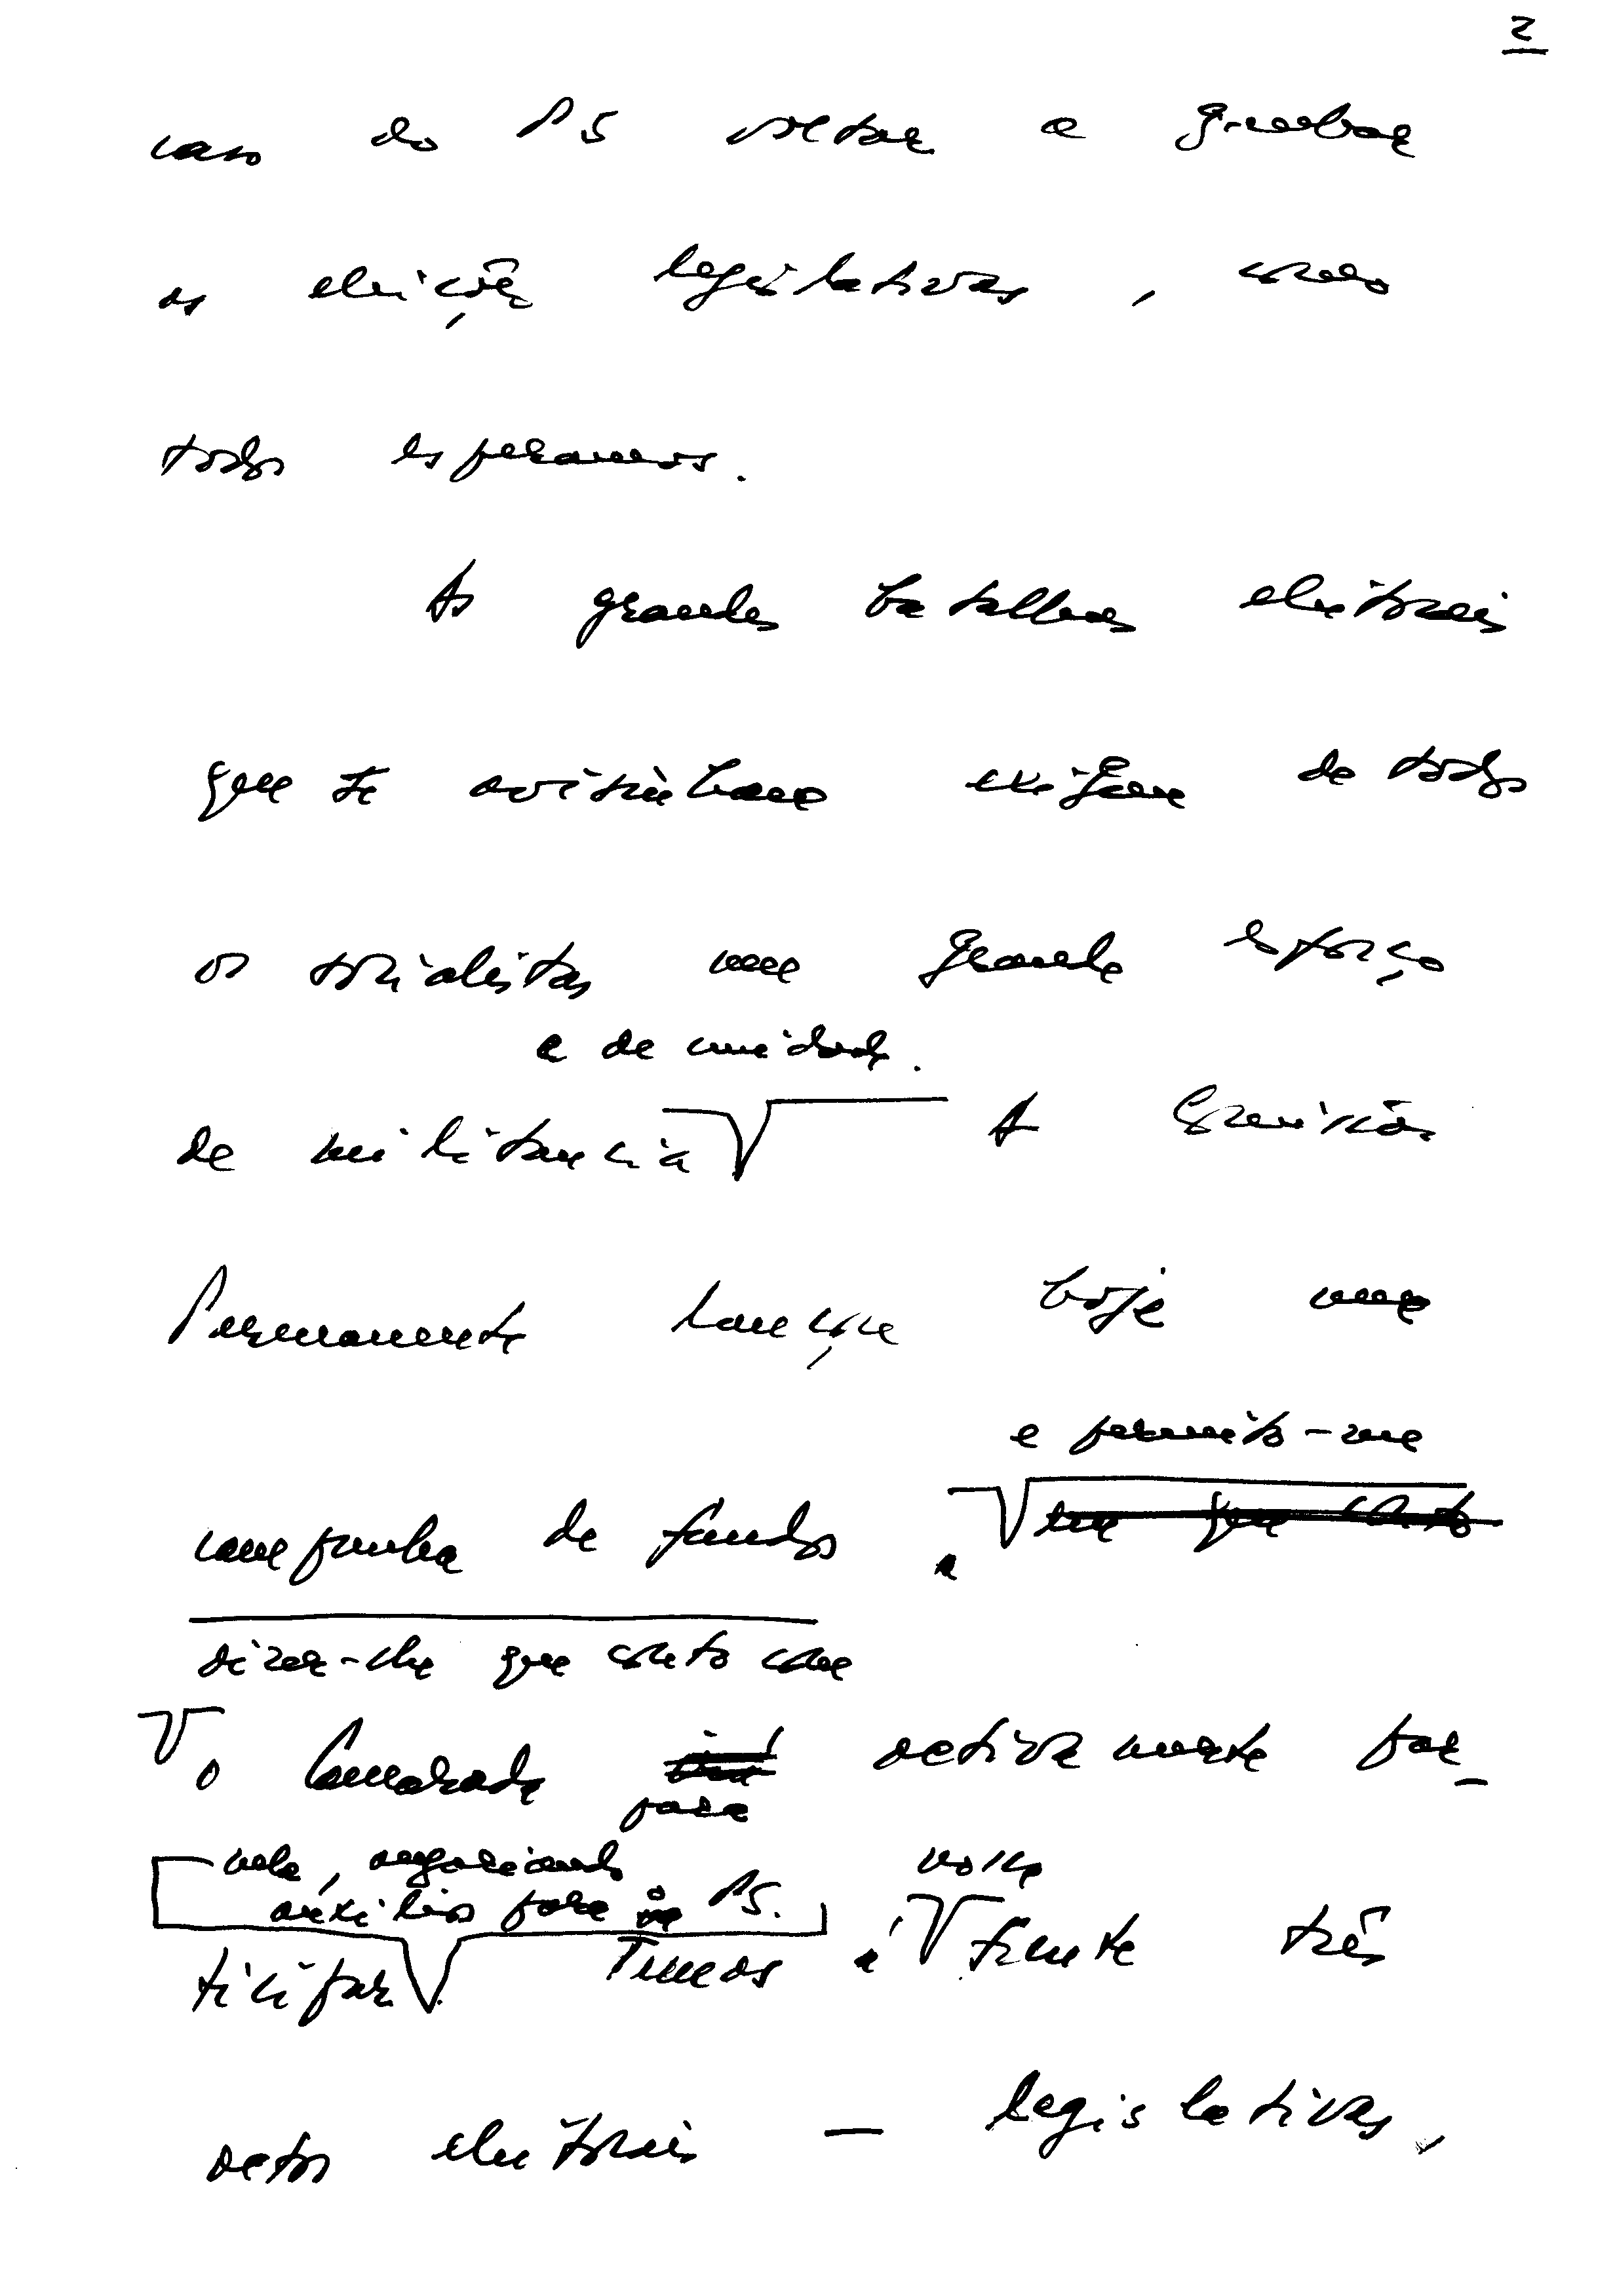 2
caso do PS voltar a ganhar
as eleições legislativas, como
todos esperamos.
As grandes batalhas eleitorais
que se avizinham exigem de todos
os socialistas um grande esforço
e de unidade.
de militância A Comissão
Permanente lançou hoje uma
e permito-me
campanha de fundos em que conto
dizer-lhe que conto com
o Camarada para activamente par-
nela, angariando
auxílios para o PS.
vossa
ticipar. Temos à frente três
actos eleitorais — legislativas,